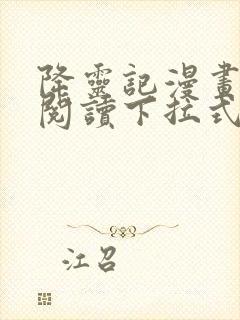 降靈記漫畫
閱讀下拉式
江召